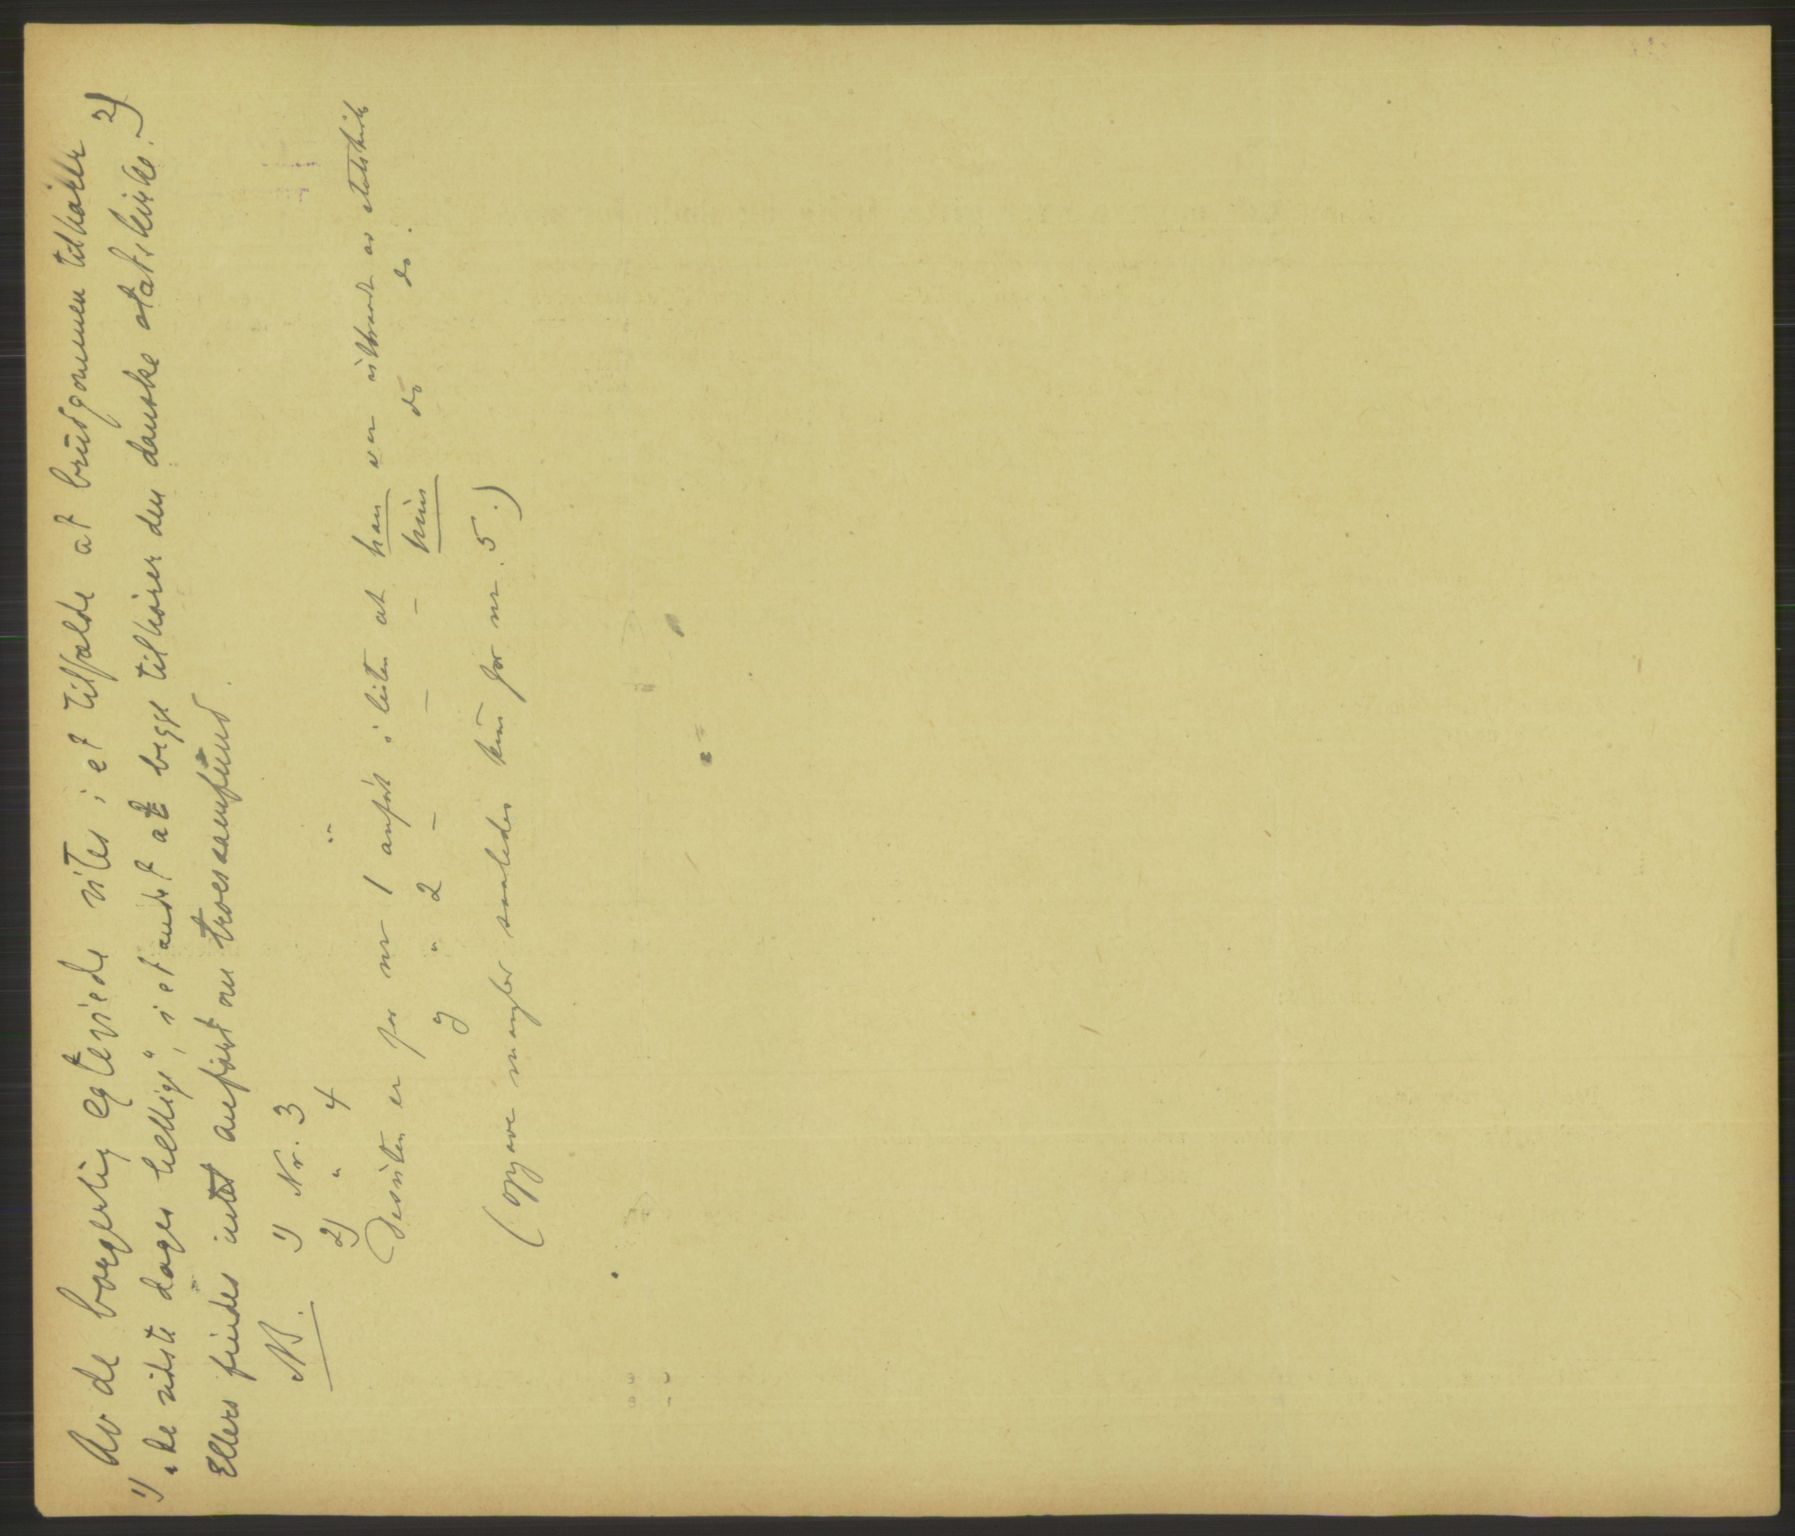 Av de borgerlig egteviede vites i et tilfælde at brudgommen tilhører
1) "de sidste dages hellige", i et andet at begge tilhører den danske statskirke. 2)
Ellers findes intet anført om troessamfund.
NB. 1) Nr. 3
2) " 4
(Desuten er for nr 1 anført i listen at han var uttraadt av statskirke
og " 2 — — — hun do do.
(opgave mangler saaledes kun for nr. 5.)